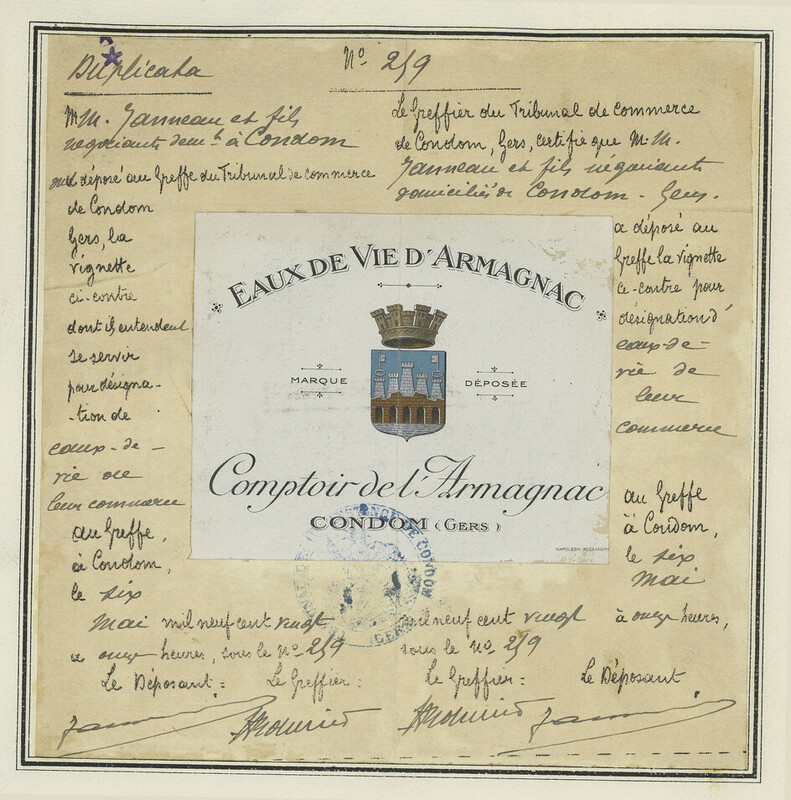 Duplicata
No 259
M.M. Janneau et fils
négociants demt à Condom
ont déposé au Greffe du Tribunal de commerce
de Condom
Gers, la
vignette
ci-contre
dont ils entendent
se servir
pour désigna-
-tion de
eaux-de-
vie de
leur commerce
au Greffe,
à Condom,
le six
Mai mil neuf cent vingt
a onze heures, sous le No 259
Le Déposant : Le Greffier :
Janneau
Le Greffier du Tribunal de commerce
de Condom, Gers, certifie que M.M.
Janneau et fils négociants
domiciliés de Condom - Gers.
a déposé au
Greffe la vignette
ci-contre pour
désignation d'
eaux-de-
vie de
leur
commerce
au Greffe
à Condom,
le six
Mai
mil neuf cent vingt à onze heures,
sous le No 259
Le Greffier : Le Déposant
Janneau
EAUX DE VIE D'ARMAGNAC
MARQUE DÉPOSÉE
Comptoir de l'Armagnac
CONDOM (GERS)
NAPOLÉON ALEXANDRE
INSTANCE DE CONDOM
GERS